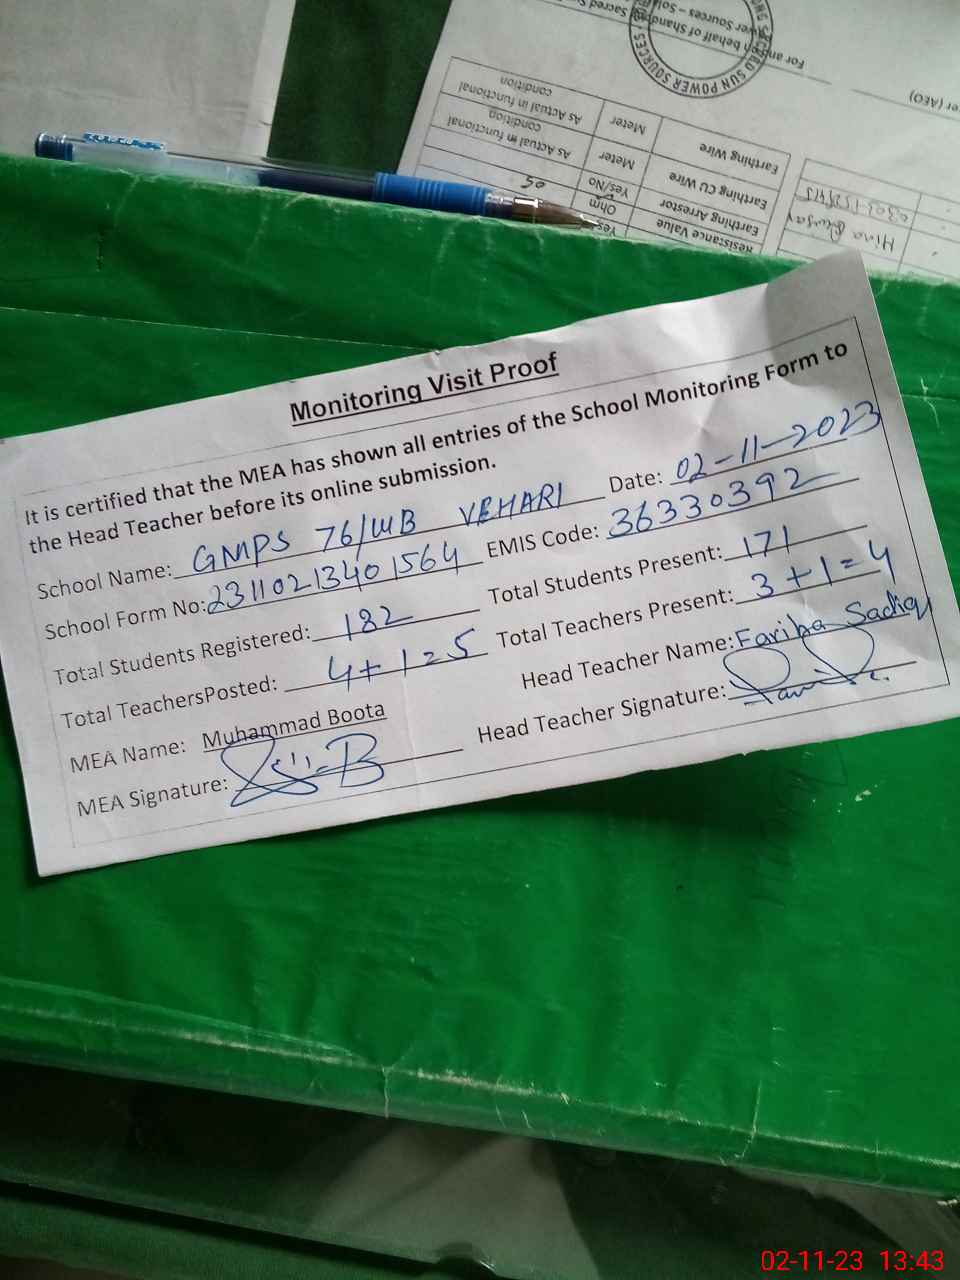 Monitoring Visit Proof
It is certified that the MEA has shown all entries of the School Monitoring Form to
the Head Teacher before its online submission.
School Name: GMPS 76/WB VEHARI Date: 02-11-2023
School Form No: 231102134015 64 EMIS Code: 36330392
Total Students Registered: 182 Total Students Present: 171
Total TeachersPosted: 4+1=5 Total Teachers Present: 3+1=4
MEA Name: Muhammad Boota Head Teacher Name: Fariha Sadiq
MEA Signature: Head Teacher Signature:
For and on behalf of
SUN POWER SOURCES
(AEO)
Earthing Wire Meter As Actual in functional condition
Earthing CU Wire Meter As Actual in functional condition
Earthing Arrestor Yes/No
Resistance Value Ohm 05
Yes
Hina
02-11-23 13:43